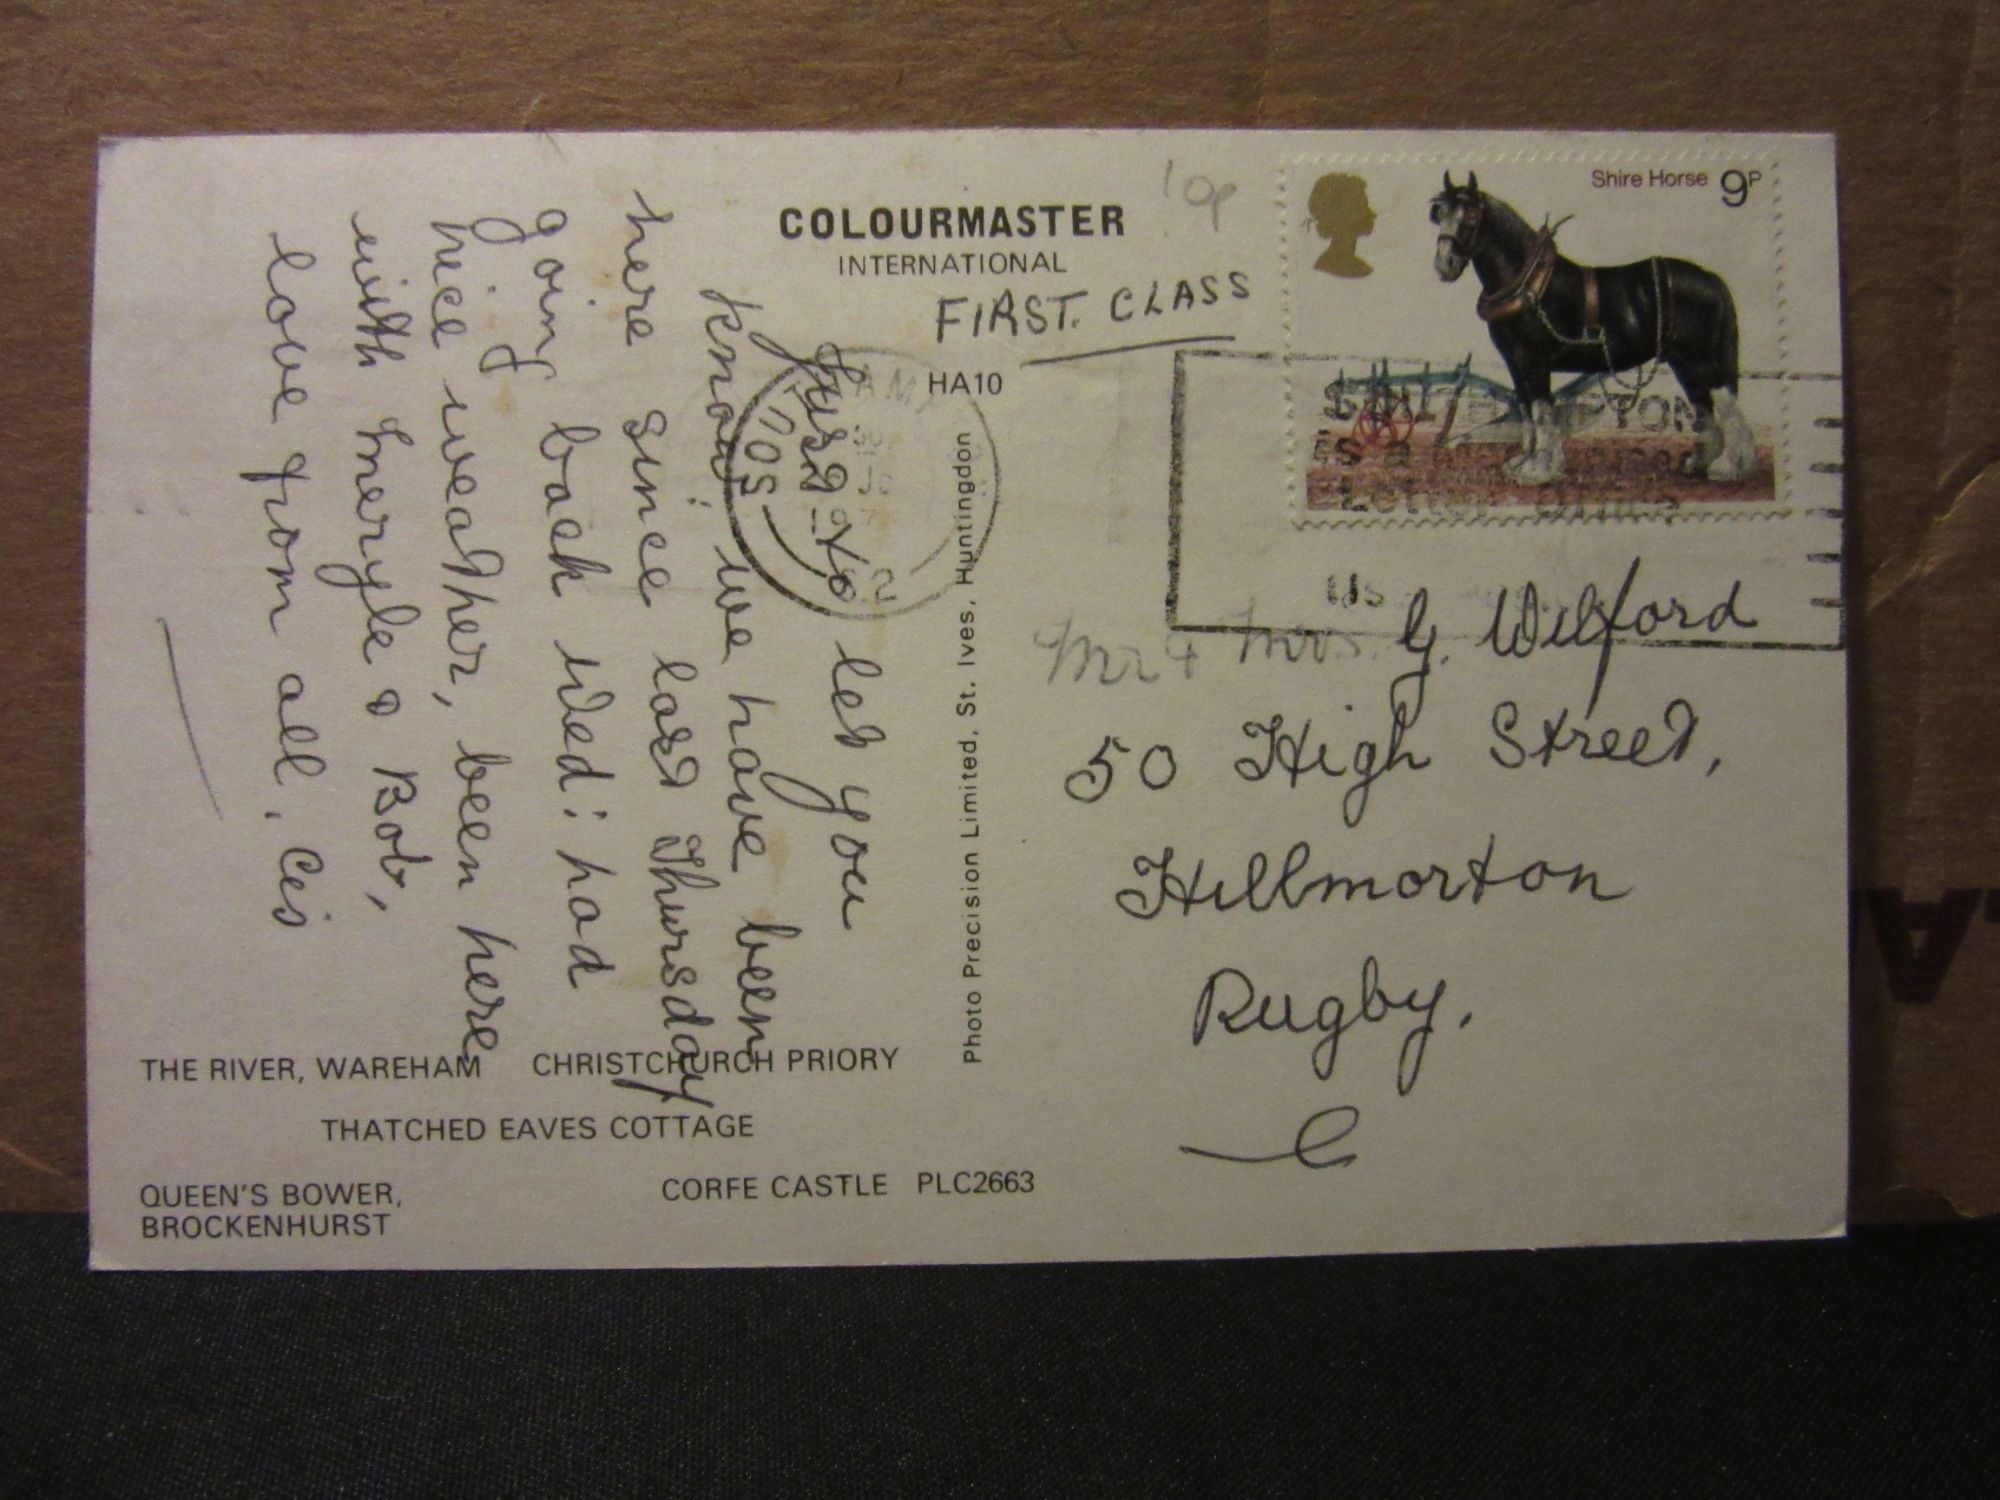 COLOURMASTER
INTERNATIONAL
10p
FIRST. CLASS
HA10
Shire Horse 9P
SOUTHAMPTON
is a mechanised
Letter Office
Just to let you
know: we have been
here since last Thursday
going back Wed: had
nice weather, been here
with Meryle & Bob,
love from all. Cis
Photo Precision Limited, St. Ives, Huntingdon
Mr & Mrs. G. Wilford
50 High Street,
Hillmorton
Rugby.
THE RIVER, WAREHAM CHRISTCHURCH PRIORY
THATCHED EAVES COTTAGE
QUEEN'S BOWER,
BROCKENHURST
CORFE CASTLE PLC2663